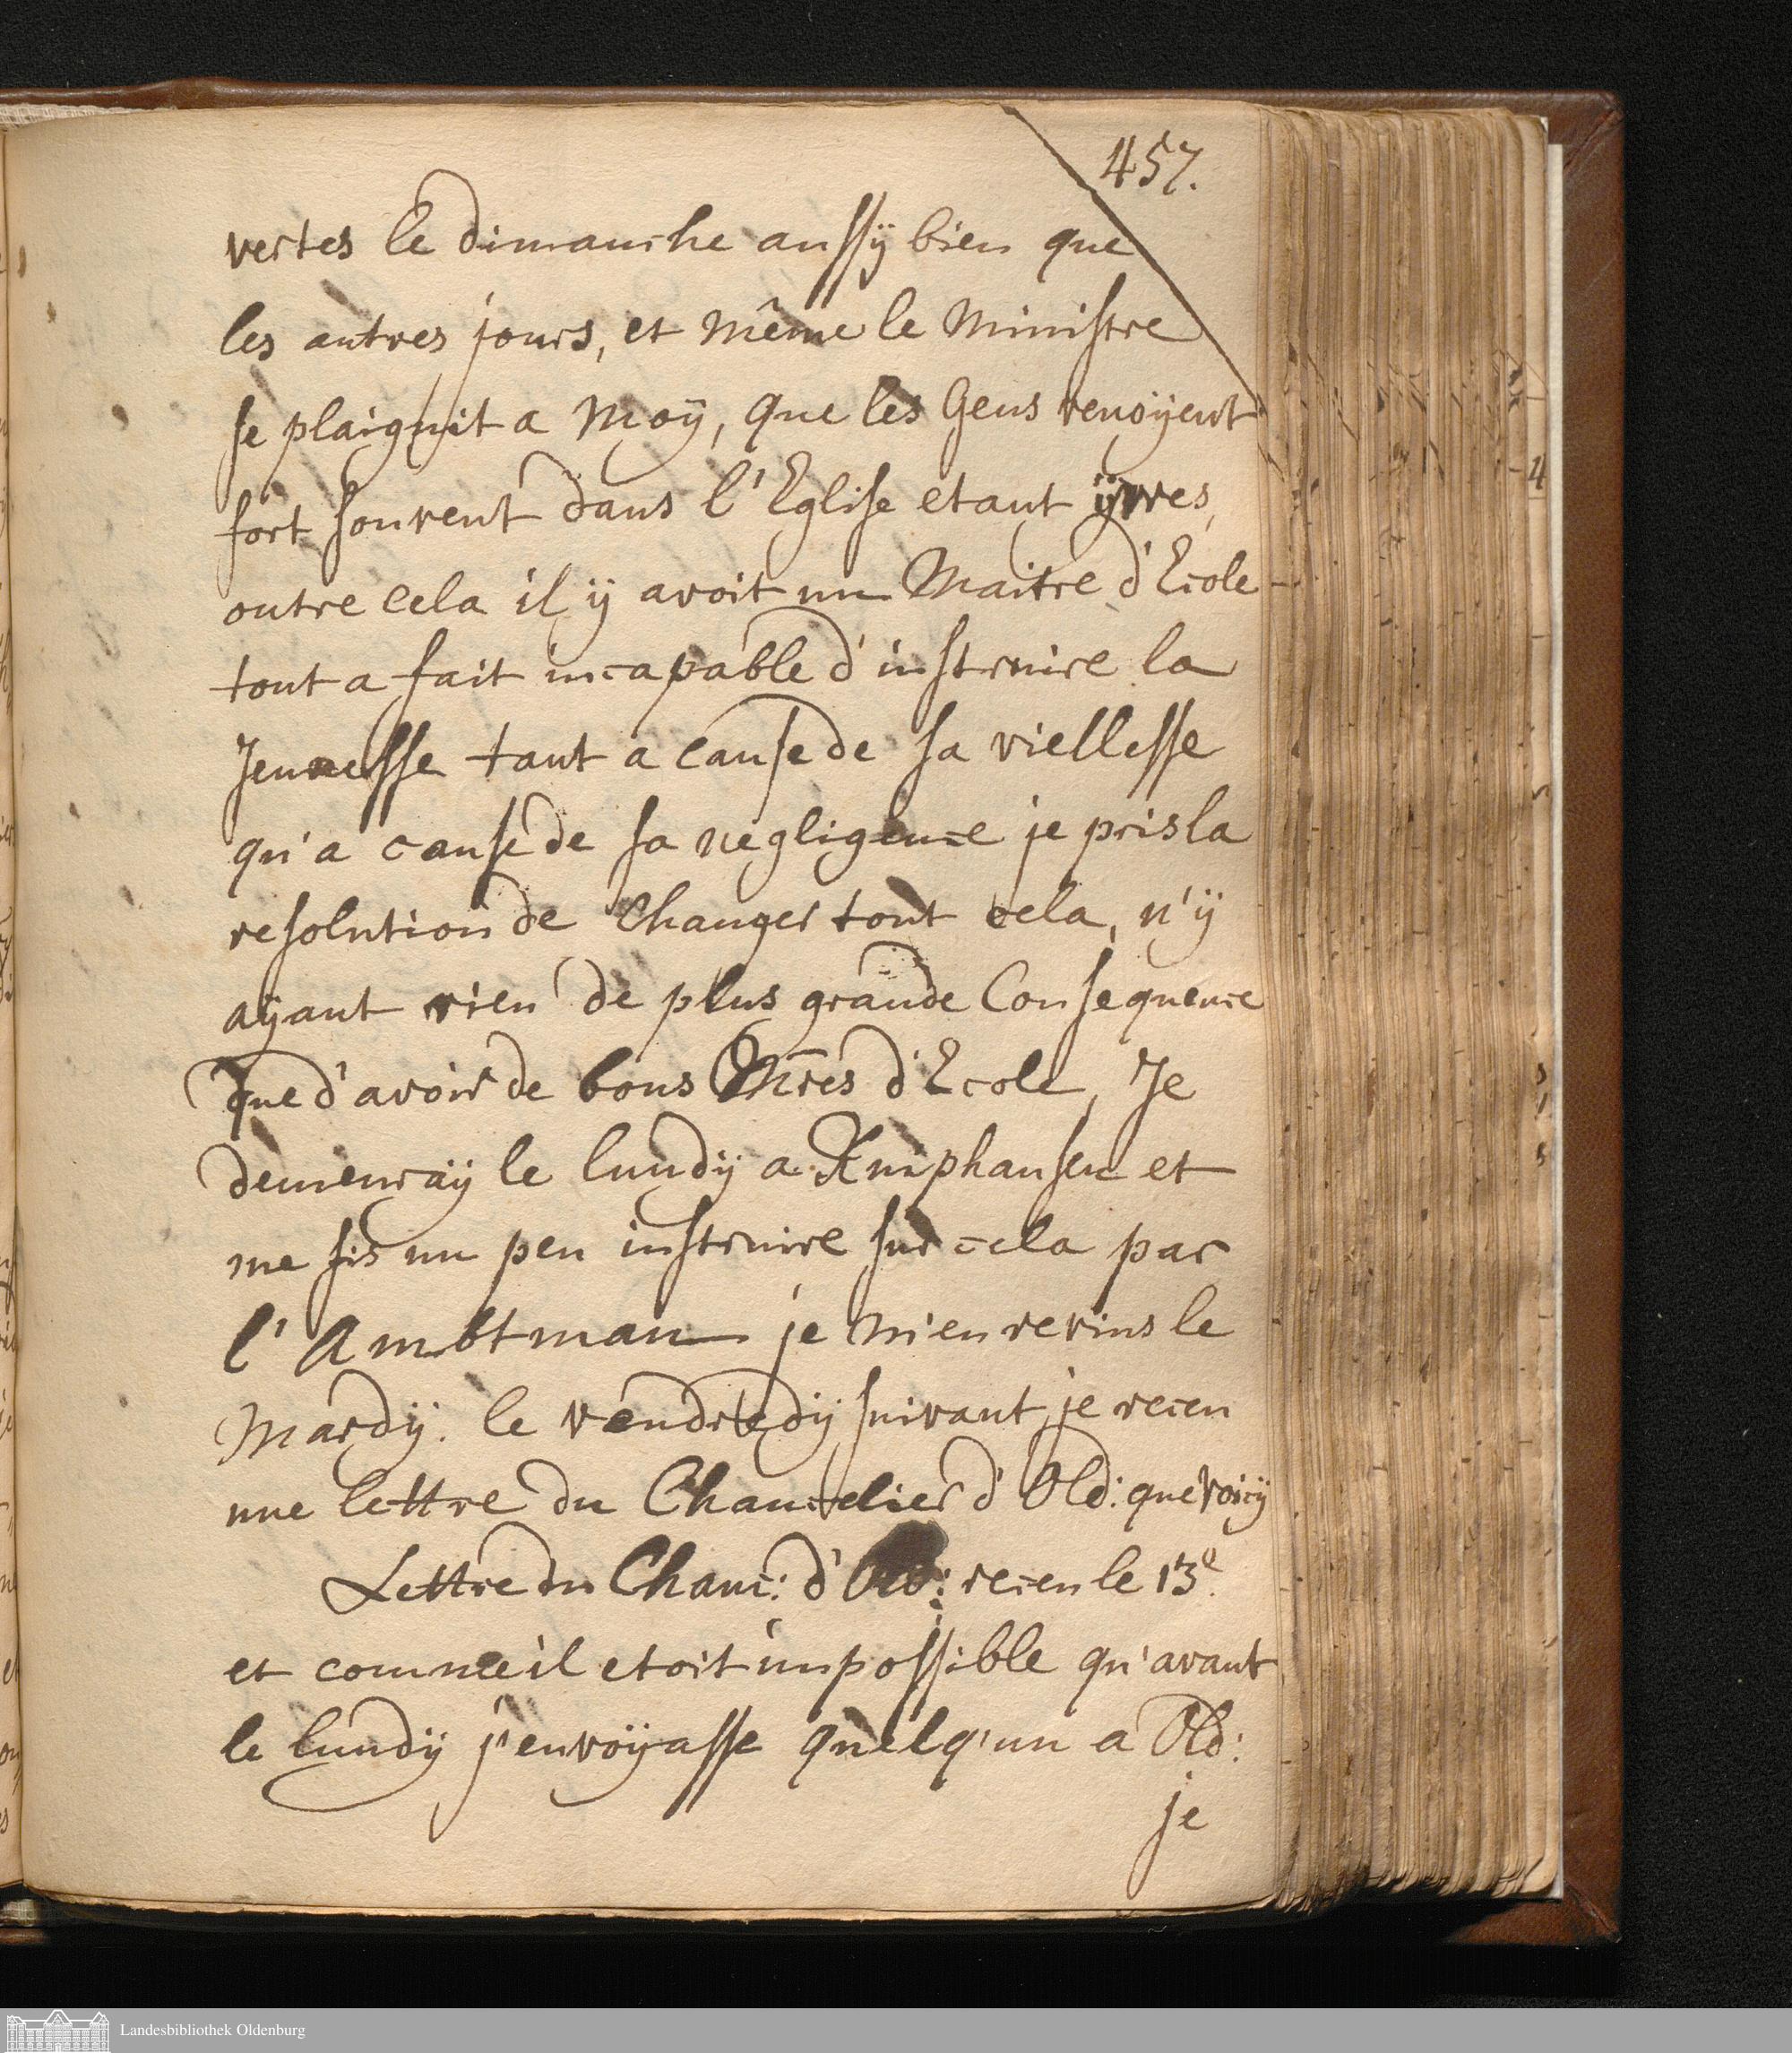 457.
vertes le dimanche aussÿ bien que
les autres jours, et même le Ministre
se plaignit a Moÿ, que les Gens venoÿent
fort souvent dans l'Eglise etant ÿvres,
outre cela il ÿ avoit un Maitre d'Ecole
tout a fait incapable d'instruire la
Jeunesse tant a cause de sa viellesse
qu'a cause de sa negligence je pris la
resolution de changer tout cela, n'ÿ
aÿant rien de plus grande Consequence
que d'avoir de bons Mres d'Ecole, Je
demeuraÿ le lundÿ a Kniphausen et
me fis un peu instruire sur cela par
l'Ambtman je m'en revins le
Mardÿ. le vendredÿ suivant je receu
une lettre du Chancelier d'Old: que voicÿ
Lettre du Chanc: d'Old: receu le 13e.
et comme il etoit impossible qu'avant
le lundÿ j'envoÿasse quelq'un a Old:
je
Landesbibliothek Oldenburg